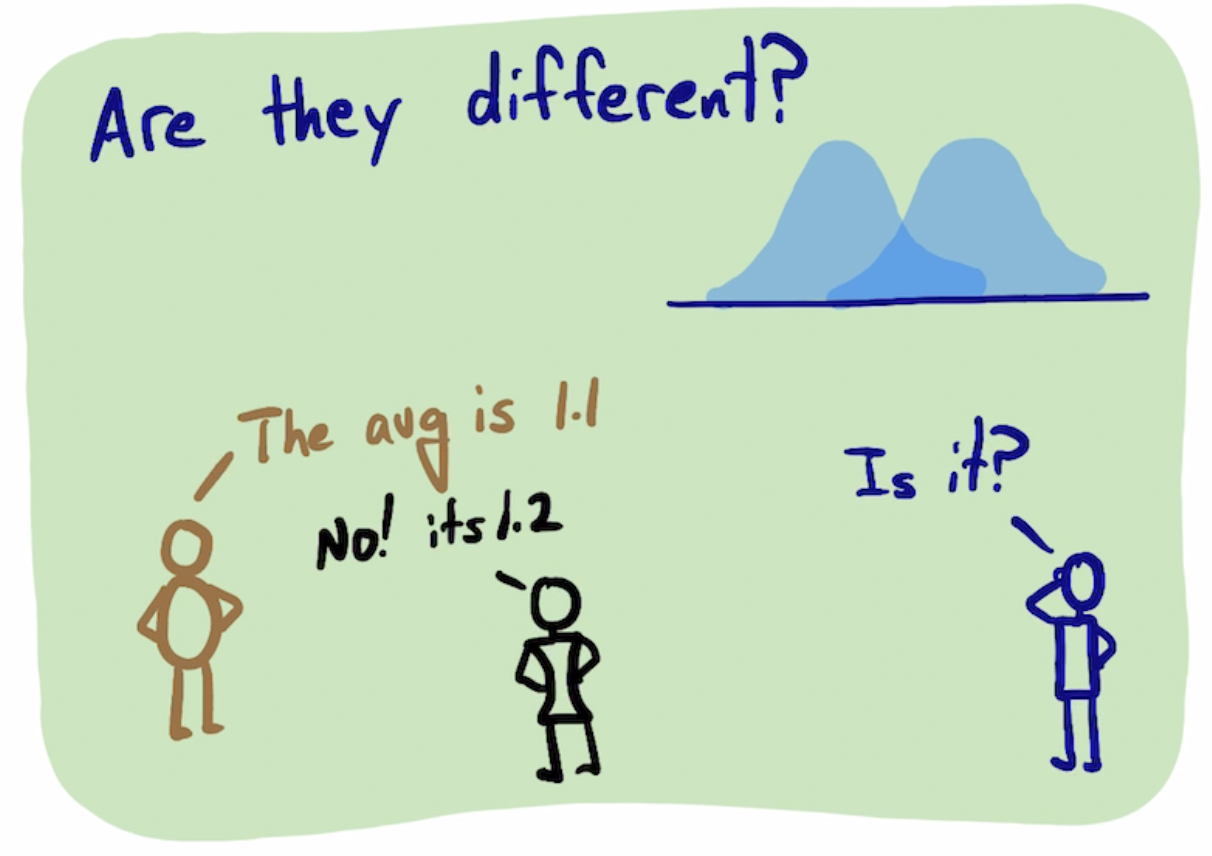 Are they different?
The avg is 1.1
No! its 1.2
Is it?